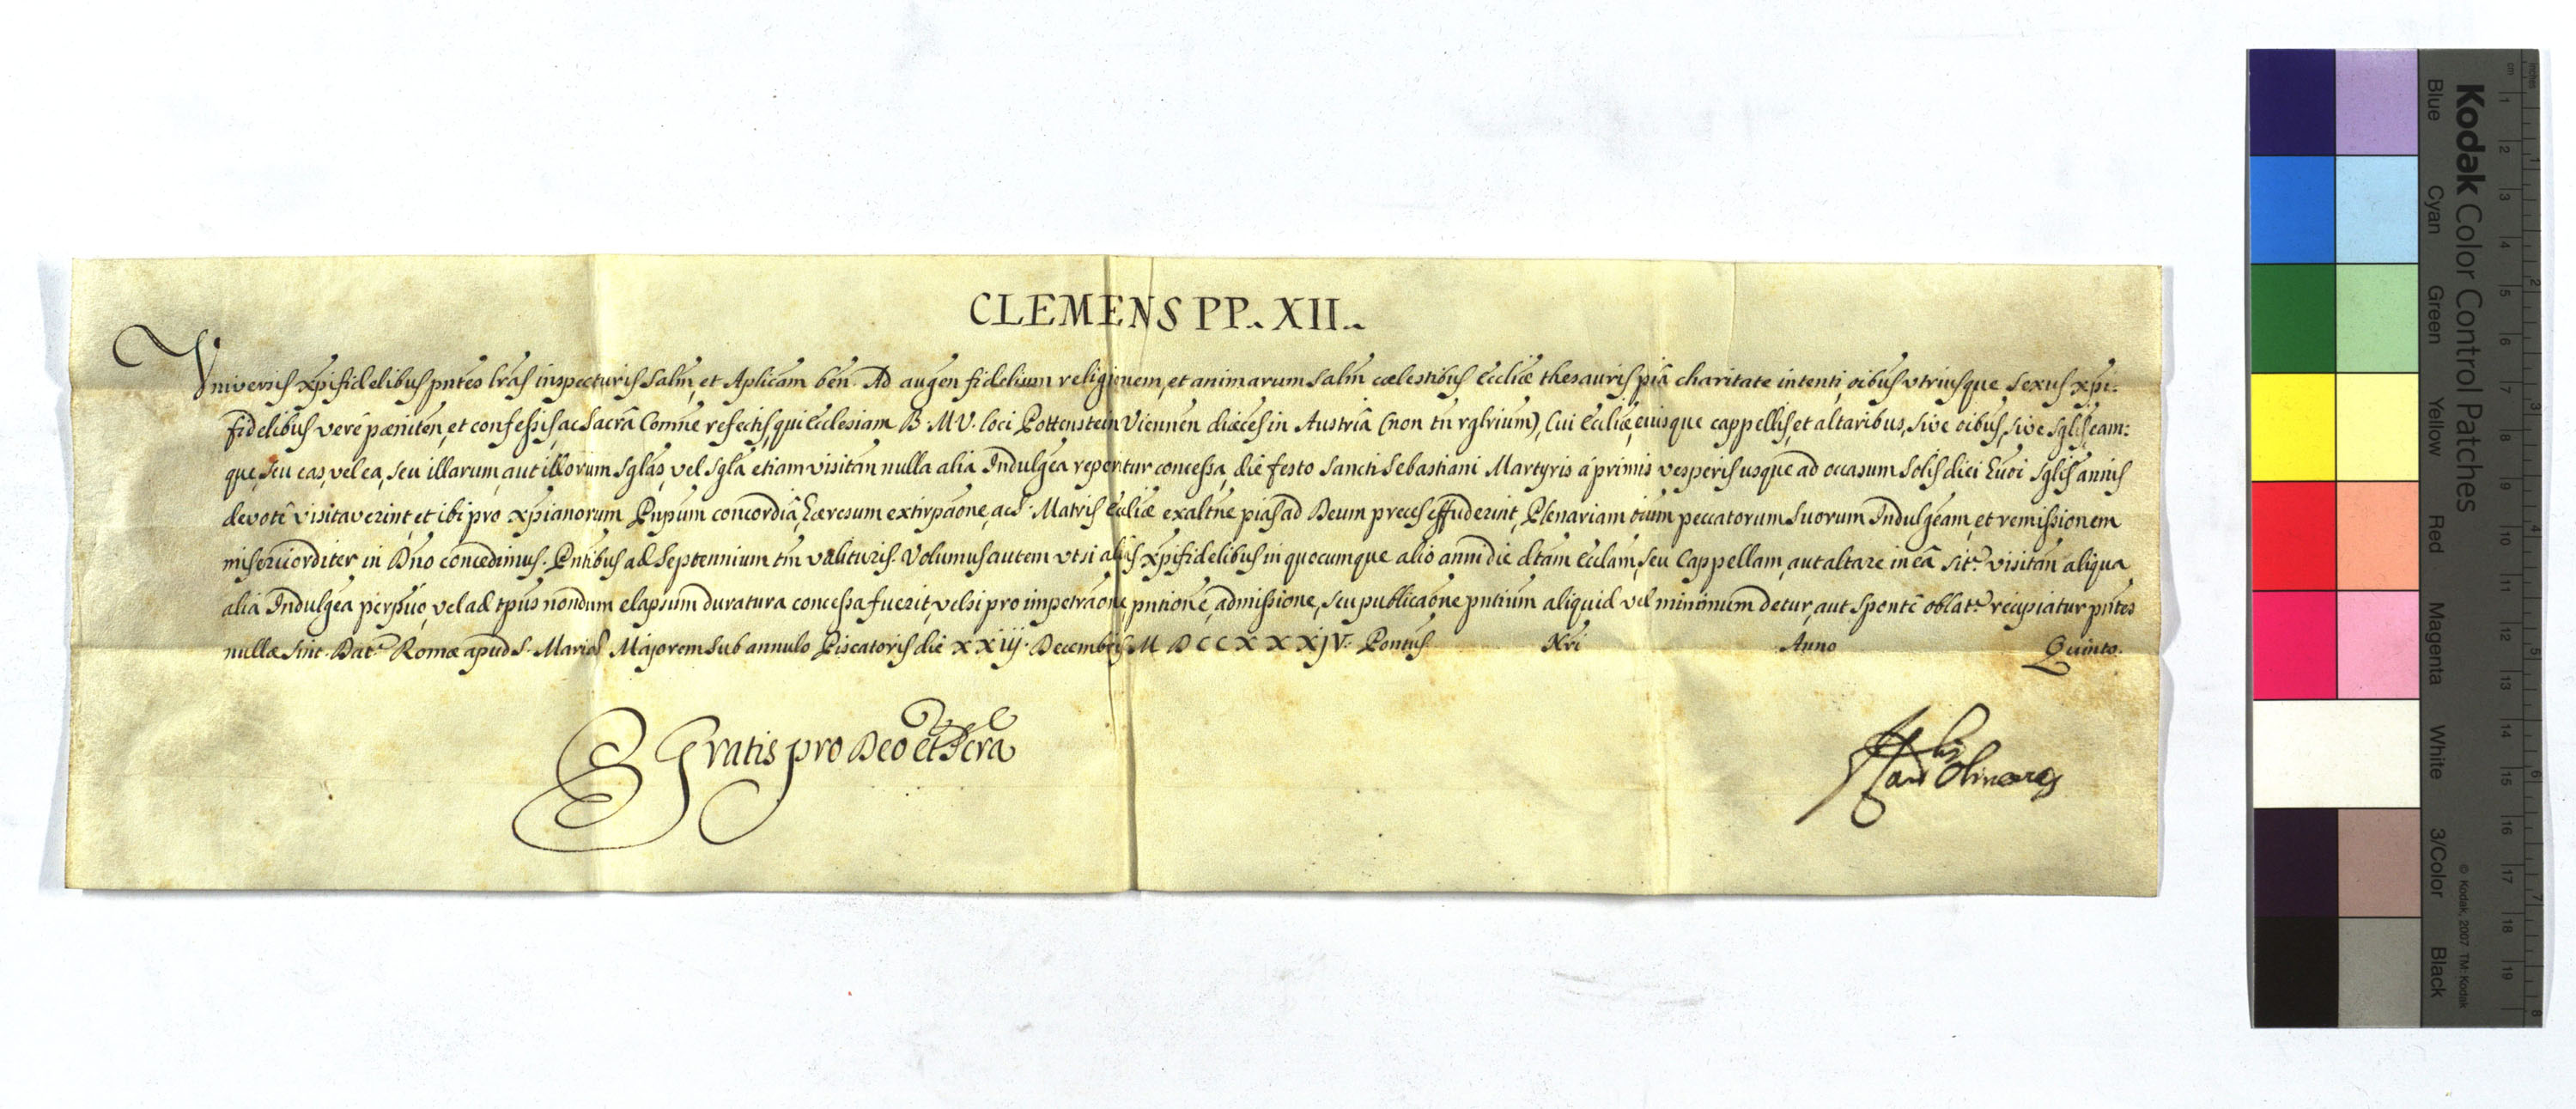 CLEMENS PP. XII.
Universis xpifidelibus pntes lras inspecturis Salm, et Aplicam ben. Ad augen fidelium religionem, et animarum Salm cœlestibus Eccliæ thesauris piâ charitate intenti, oibus utriusque Sexus xpi-
fidelibus verè pæniten, et confessis, ac Sacrâ Comne refectis, qui Ecclesiam B. M. V. loci Pottenstein Viennen diæces in Austriâ (non tñ rglrium), Cui Eccliæ, eiusque cappellis, et altaribus, sive oibus, sive Sglis, eam:
que, seu eas, vel ea, seu illarum, aut illorum Sglas, vel Sgla etiam visitan nulla alia Indulgea reperitur concessa, die festo Sancti Sebastiani Martyris à primis vesperis usque ad occasum Solis diei huoi Sglis annis
devotè visitaverint, et ibi pro xpianorum Pnpum concordiâ, hæresum extirpaone, ac S. Matris Eccliæ exaltne pias ad Deum preces effuderint, Plenariam oium peccatorum Suorum Indulgeam, et remissionem
misericorditer in Dno concedimus. Pntibus ad Septennium tm valituris. Volumus autem ut si alias xpifidelibus in quocumque alio anni die dtam Ecclam, seu Cappellam, aut altare in eâ sit. visitan aliqua
alia Indulgea perpuo, vel ad tpus nondum elapsum duratura concessa fuerit, vel si pro impetraone, pntione, admissione, seu publicaone pntium aliquid vel minimum detur, aut Spontè oblat. recipiatur pntes
nullæ sint. Dat. Romæ apud S. Mariã Majorem sub annulo Piscatoris die XXIII. Decembris MDCCXXXIV. Pontus Nri Anno Quinto.
Gratis pro Deo et Scra
Kodak Color Control Patches
Blue Cyan Green Yellow Red Magenta White 3/Color Black
© Kodak, 2007 TM: Kodak
cm 1 2 3 4 5 6 7 8 9 10 11 12 13 14 15 16 17 18 19
inches 1 2 3 4 5 6 7 8